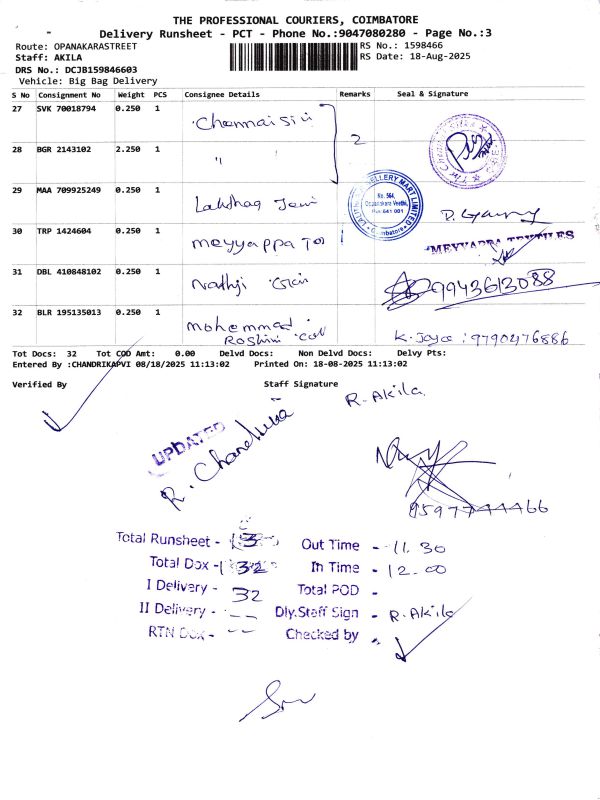 THE PROFESSIONAL COURIERS, COIMBATORE
Delivery Runsheet - PCT - Phone No.:9047080280 - Page No.:3
Route: OPANAKARASTREET
RS No.: 1598466
Staff: AKILA
RS Date: 18-Aug-2025
DRS No.: DCJB159846603
Vehicle: Big Bag Delivery
S No Consignment No Weight PCS Consignee Details Remarks Seal & Signature
27 SVK 70018794 0.250 1 Chennai Silk
28 BGR 2143102 2.250 1 " 2
29 MAA 709925249 0.250 1
No. 564,
Oppanakara Veethi,
Coimbatore
30 TRP 1424604 0.250 1 meyyappa Tex
MEYYAPPA TEXTILES
31 DBL 410848102 0.250 1 9943613088
32 BLR 195135013 0.250 1 mohammad
Roshini K. Jaya : 9790476886
Tot Docs: 32 Tot COD Amt: 0.00 Delvd Docs: Non Delvd Docs: Delvy Pts:
Entered By :CHANDRIKAPVI 08/18/2025 11:13:02 Printed On: 18-08-2025 11:13:02
Verified By Staff Signature
R. Akila
UPDATED
9597744466
Total Runsheet - 3 Out Time - 11.30
Total Dox - 32 In Time - 12.00
I Delivery - 32 Total POD -
II Delivery - -- Dly.Staff Sign - R. Akila
RTN Dox - -- Checked by -